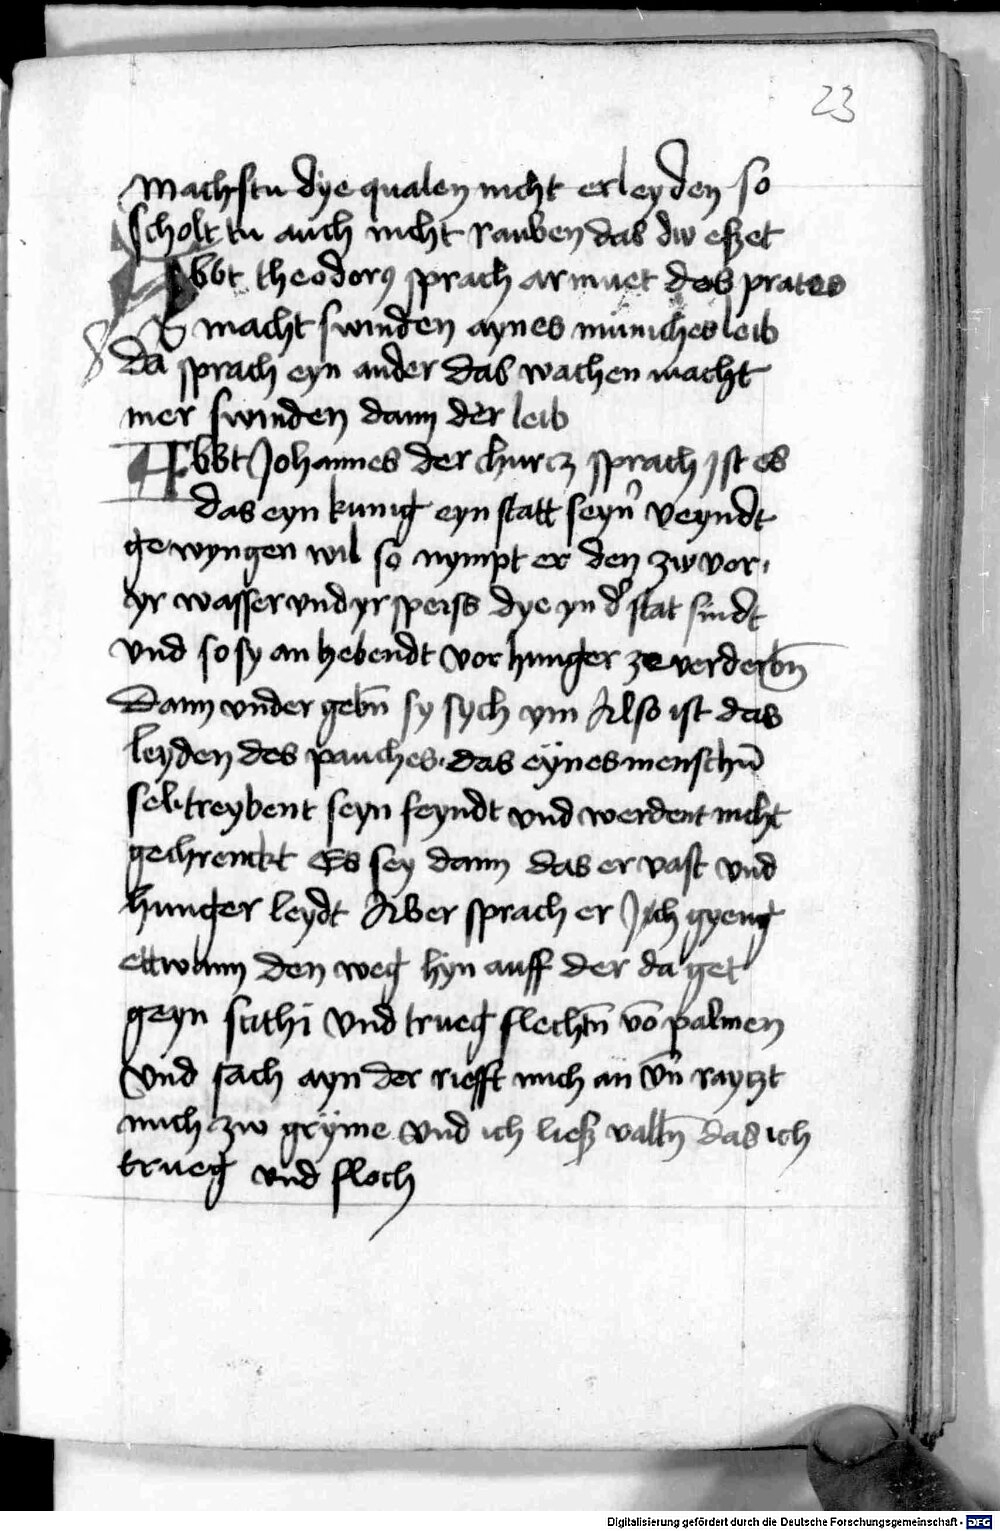 23
Machstu dye qualen nicht erleyden so
scholt tu auch nicht rauben das dw eßet
Abbt theodorꝰ sprach armuet des prates
macht swinden aynes müniches leib
da sprach eyn ander das wachen macht
mer swinden dann der leib
Abbt Johannes der churcz sprach Jst es
das eyn kunig eyn statt seynr̄ veyndt
gewyngen wil so nympt er den zw vor
yr wasser vnd yr speiss dye yn dˀ stat sindt
vnd so sy an hebendt vor hunger ze verderbn̄
Dann vnder gebn̄ sy sych ym Also ist das
leyden des pauches. das eÿnes menschn̄
sel treybent seyn feyndt vnd werdent nicht
gechrenckt Es sey dann das er vast vnd
hunger leydt Aber sprach er Jch gyeng
ettwann den weg hyn auff der da get
geyn scithi vnd trueg flechtn̄ vō palmen
vnd sach ayn der riefft mich an vn̄ raytzt
mich zw grÿme vnd ich ließ valln̄ das ich
trueg vnd floch
Digitalisierung gefördert durch die Deutsche Forschungsgemeinschaft - DFG